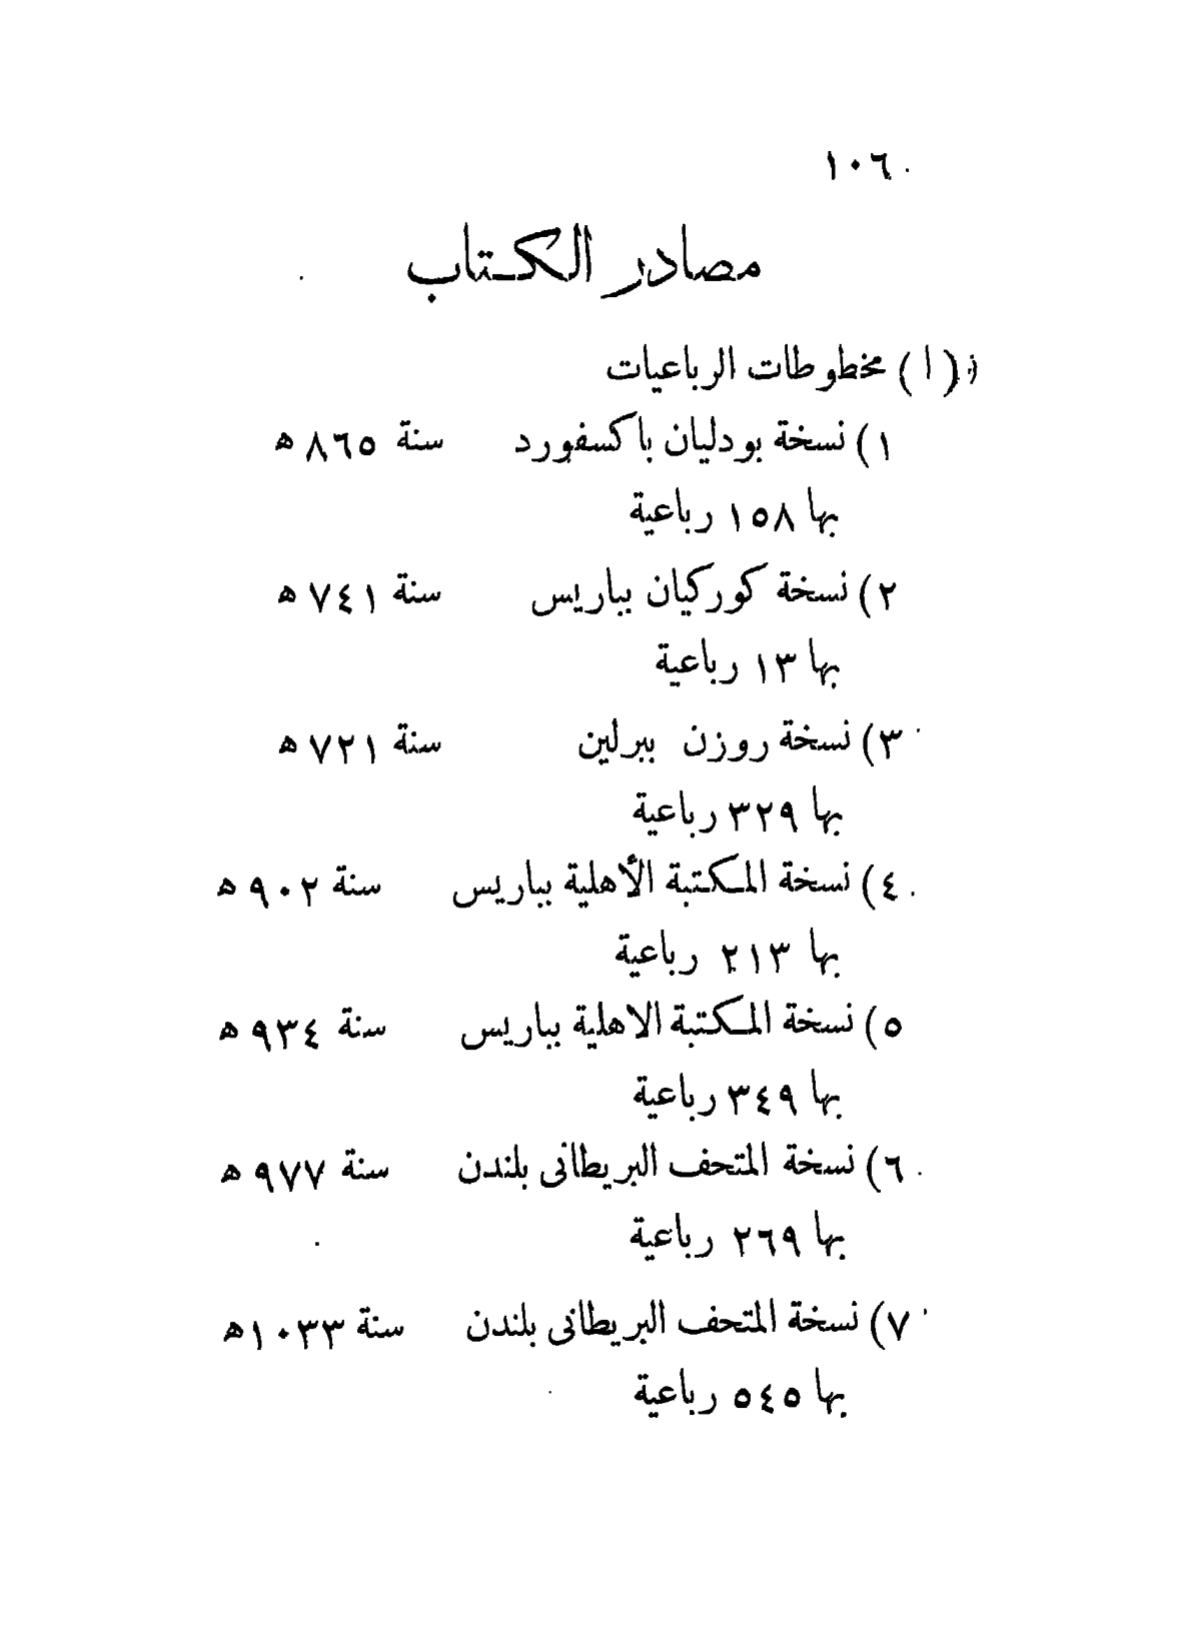 ١٠٦
مصادر الكتاب
(ا) مخطوطات الرباعيات
١) نسخة بودليان باكسفورد سنة ٨٦٥ ھ
بها ١٥٨ رباعية
٢) نسخة كوركيان بباريس سنة ٧٤١ ھ
بها ١٣ رباعية
٣) نسخة روزن ببرلين سنة ٧٢١ ھ
بها ٣٢٩ رباعية
٤) نسخة المكتبة الأهلية بباريس سنة ٩٠٢ ھ
بها ٢١٣ رباعية
٥) نسخة المكتبة الاهلية بباريس سنة ٩٣٤ ھ
بها ٣٤٩ رباعية
٦) نسخة المتحف البريطانى بلندن سنة ٩٧٧ ھ
بها ٢٦٩ رباعية
٧) نسخة المتحف البريطانى بلندن سنة ١٠٣٣ھ
بها ٥٤٥ رباعية